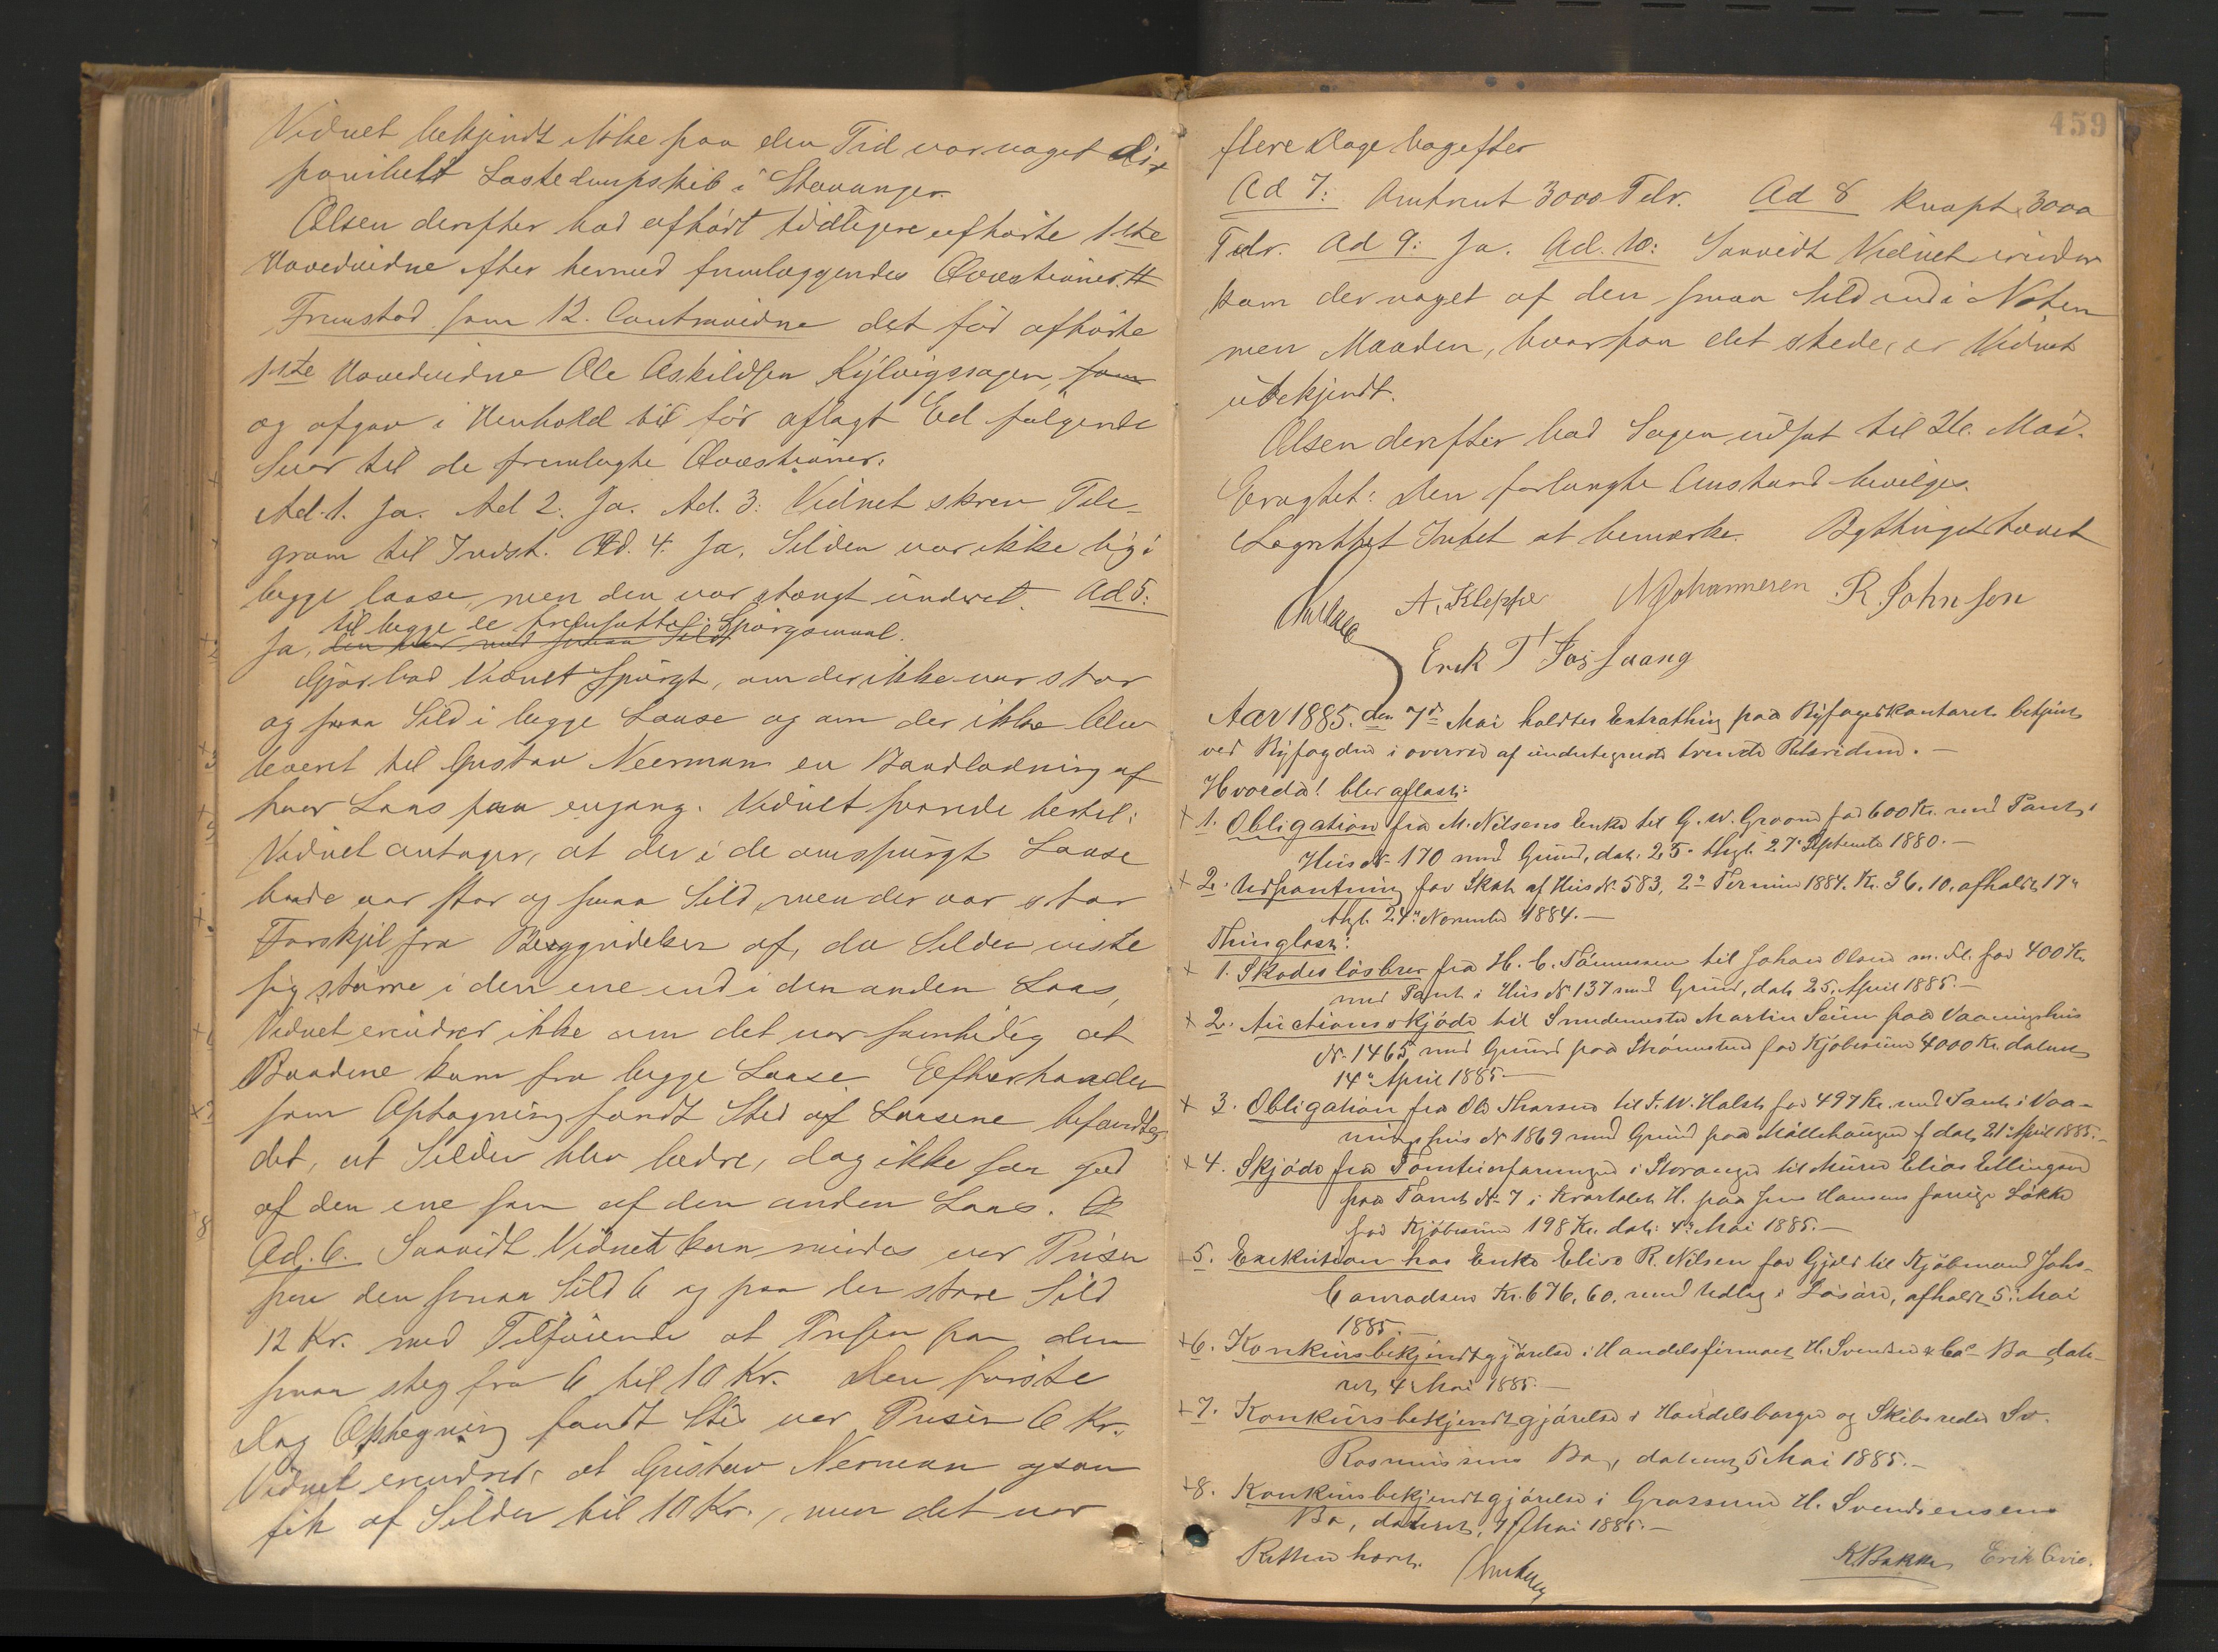 Vidnet bekjendt ikke paa den Tid var noget dis-
ponibelt Lastedampskib i Stavanger.
Olsen derefter bad afhørt tidligere afhørte 1ste
Hovedvidne efter hermed fremlæggendes Qvæstioner.
Fremstod som 12. Contravidne det før afhørte
1ste Hovedvidne Ole Askildsen Kylvigssagen, som
og afgav i Henhold til før aflagt Ed følgende
Svar til de fremlagte Qvæstioner:
Ad. 1. Ja. Ad 2. Ja. Ad. 3: Vidnet skrev Tele-
gram til Indst. Ad. 4. Ja, Silden var ikke lig i
begge laase, men den var stængt underet. Ad 5:
til begge de fremsatte Spørgsmaal.
Ja, den var med smaa Sild
Gjør bad Vidnet spurgt, om der ikke var stor
og smaa Sild i begge Laase og om der ikke blev
leveret til Gustav Neerman en Baadladning af
hver Laas paa engang. Vidnet svarede hertil:
Vidnet antager, at der i de omspurgte Laase
baade var stor og smaa Sild, men der var stor
Forskjel fra Begyndelsen af, da Silden viste
sig større i den ene end i den anden Laas,
Vidnet erindrer ikke om det var samtidig at
Baadene kom fra begge Laase. Efterhaanden
som Optagning fandt Sted af Laasene befandtes
det, at Silden blev bedre, dog ikke saa god
af den ene som af den anden Laas.
Ad. 6. Saavidt Vidnet kan mindes var Prisen
paa den smaa Sild 6 og paa den store Sild
12 Kr. med Tilføiende at Prisen paa den
smaa steg fra 6 til 10 Kr. Den første
Dag Optagning fandt Sted var Prisen 6 Kr.
Vidnet erindrer at Gustav Nerman ogsaa
fik af Silden til 10 Kr., men det var
459
flere Dage bagefter
Ad 7: Omtrent 3000 Tdr. Ad 8 knapt 3000
Tdr. Ad 9: Ja. Ad. 10: Saavidt Vidnet erindrer
kom der noget af den smaa Sild ind i Noten
men Maaden, hvorpaa det skede, er Vidnet
ubekjendt.
Olsen derefter bad Sagen udsat til 21e. Mai.
Eragtet: Den forlangte Anstand bevilges.
Lagrettet Intet at bemærke. Bythinget hævet
A. Kleppe N Johannesen R. Johnsen
Erik T Fosvaag
Aar 1885. den 7de Mai holdtes Extrathing paa Byfogedkontoret betjent
ved Byfogden i overvær af undertegnede tvende Retsvidner. —
Hvorda! blev aflæst:
+ 1. Obligation fra M. Nilsens Enke til G. W. Groom for 600 Kr. med Pant i
Hus No 170 med Grund, dat. 25. thgl. 27 Septemb 1880. —
+ 2. Udpantning for Skat af Hus No. 583, 2n Termin 1884. Kr. 36.10. afholdt 17
thgl. 24 November 1884. —
Thinglæst:
+ 1. Skadesløsbrev fra H. C. Tønnessen til Johan Olsen m. Fl. for 400 Kr.
med Pant i Hus No 137 med Grund, dat. 25. April 1885. —
+ 2. Auctionsskjøde til Snedkermester Martin Seim paa Vaaningshus
No. 1465 med Grund paa Strømsteen for Kjøbesum 4000 Kr. dateret
14 April 1885 —
+ 3. Obligation fra Ole Thorsen til F. W. Holst for 497 Kr. med Pant i Vaa-
ningshus No 1869 med Grund paa Møllehaugen dat. 21 April 1885. —
+ 4. Skjøde fra i Stavanger til Murer Elias Ellingsen
paa Tomt No 7 i Kvartalet H. paa Jens Hansens forrige Løkke
for Kjøbesum 198 Kr. dat: 4 Mai 1885. —
+ 5. Exekution hos Enke Elise R. Nilsen for Gjæld til Kjøbmand Johs.
Conradsen Kr. 676.60. med Udlæg i Løsøre, afholdt 5 Mai
1885. —
+ 6. Konkursbekjendtgjørelse i Handelsfirmaet H. Svendsen & Co Bo date-
ret 4 Mai 1885. —
+ 7. Konkursbekjendtgjørelse i Handelsborger og Skibsreder Sv.
Rosmussens Bo, dateret 5 Mai 1885. —
+ 8. Konkursbekjendtgjørelse i Grosserer H. Svendsensens
Bo, dateret, 7 Mai 1885. —
Retten hævet.
K Bakke Erik Evie.